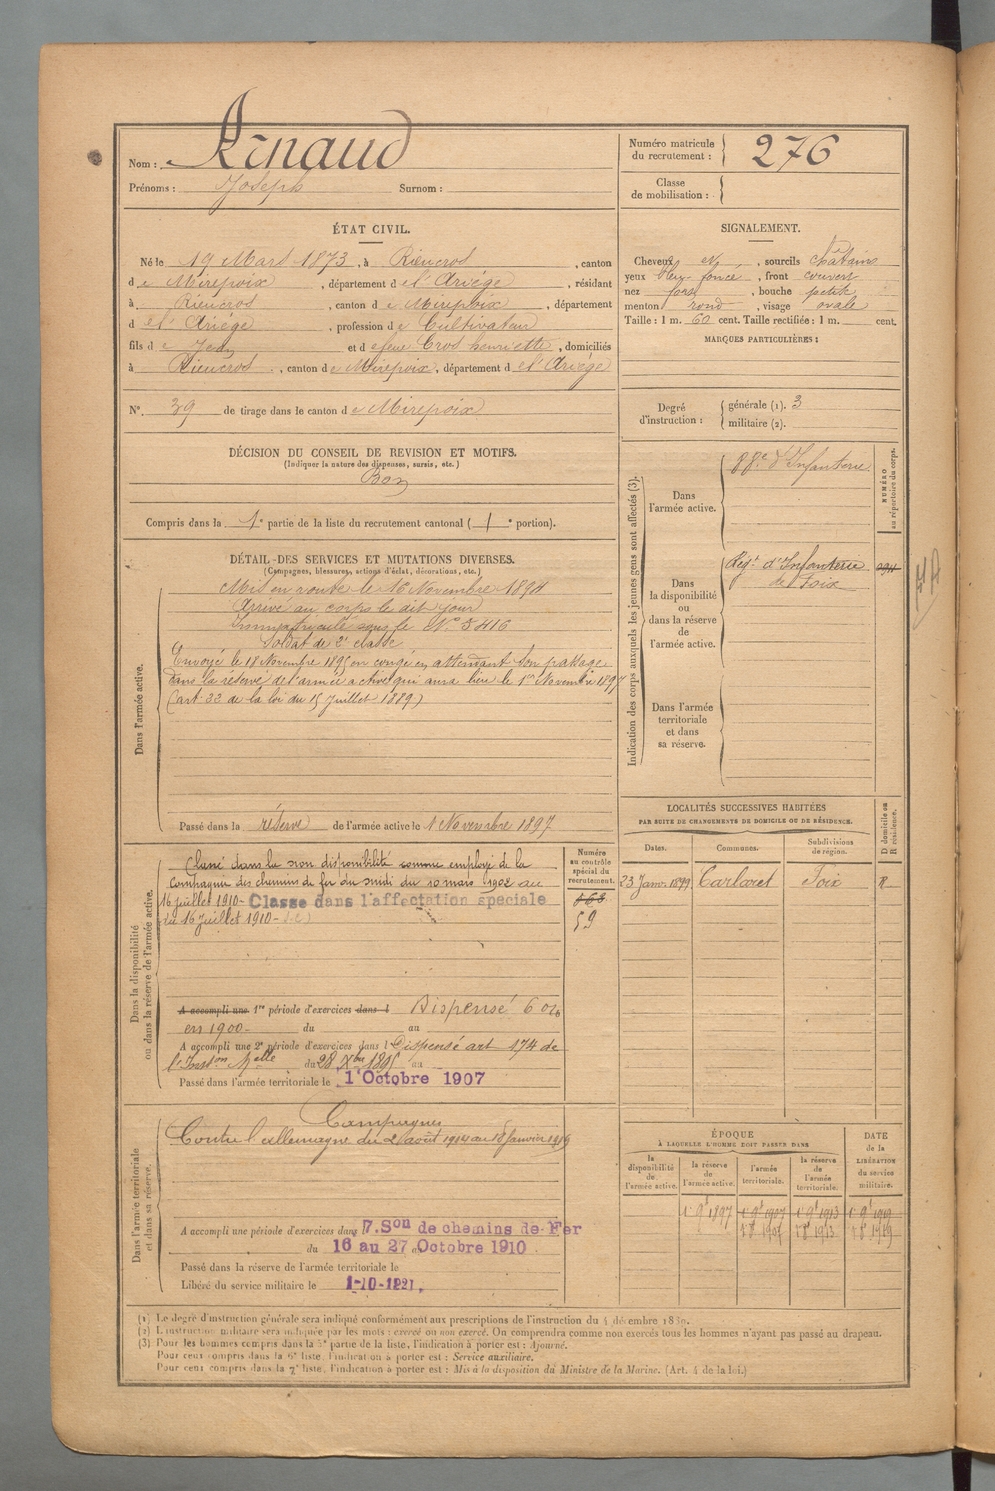 Nom : Arnaud
Prénoms : Joseph Surnom :
Numéro matricule du recrutement : 276
Classe de mobilisation :
ÉTAT CIVIL.
Né le 19 Mars 1873, à Rieucros, canton
de Mirepoix, département de l'Ariège, résidant
à Rieucros, canton de Mirepoix, département
de l'Ariège, profession de Cultivateur
fils de Jean et de feue Cros henriette, domiciliés
à Rieucros, canton de Mirepoix, département de l'Ariége
N°. 39 de tirage dans le canton de Mirepoix
SIGNALEMENT.
Cheveux , sourcils Châtains
yeux bleu foncé, front couvert
nez fort, bouche petite
menton rond, visage ovale
Taille : 1 m. 60 cent. Taille rectifiée : 1 m. cent.
MARQUES PARTICULIÈRES :
Degré d'instruction : générale (1). 3
militaire (2).
DÉCISION DU CONSEIL DE REVISION ET MOTIFS.
(Indiquer la nature des dispenses, sursis, etc.)
Bon
Compris dans la 1e partie de la liste du recrutement cantonal ( portion).
DÉTAIL DES SERVICES ET MUTATIONS DIVERSES.
(Campagnes, blessures, actions d'éclat, décorations, etc.)
Dans l'armée active.
Mis en route le 16 Novembre 1894
Arrivé au corps le dit jour
Immatriculé sous le N° 5416
Soldat de 2e classe
Envoyé le 18 Novembre 1895 en congé en attendant son passage
dans la réserve de l'armée active qui aura lieu le 1er Novembre 1897
(art 32 de la loi du 15 Juillet 1889)
Passé dans la réserve de l'armée active le 1 Novembre 1897
Indication des corps auxquels les jeunes gens sont affectés (3).
NUMÉRO au répertoire du corps.
Dans l'armée active.
88e d'Infanterie
Dans la disponibilité ou dans la réserve de l'armée active.
Régt d'Infanterie
de Foix
Dans l'armée territoriale et dans sa réserve.
LOCALITÉS SUCCESSIVES HABITÉES
PAR SUITE DE CHANGEMENTS DE DOMICILE OU DE RÉSIDENCE.
D domicile ou R résidence.
Dates. Communes. Subdivisions de région.
23 Janv. 1899 Carlaret Foix R
Dans la disponibilité ou dans la réserve de l'armée active.
Numéro au contrôle spécial du recrutement.
Classé dans la non disponibilité comme employé de la
compagnie des chemins de fer du midi du 10 mars 1902 au
16 juillet 1910 - Classe dans l'affectation speciale
du 16 Juillet 1910 -
59
A accompli une 1re période d'exercices dans l Dispensé
en 1900 du au
A accompli une 2e période d'exercices dans l Dispensé art 174 de
l'Inston Melle du 28 Xbre 1895 au
Passé dans l'armée territoriale le 1 Octobre 1907
Dans l'armée territoriale et dans sa réserve.
Campagnes
Contre l'allemagne du 2 août 1914 au
A accompli une période d'exercices dans 7.Son de chemins de Fer
du 16 au 27 Octobre 1910
Passé dans la réserve de l'armée territoriale le
Libéré du service militaire le
ÉPOQUE
À LAQUELLE L'HOMME DOIT PASSER DANS
la disponibilité de l'armée active.
la réserve de l'armée active.
l'armée territoriale.
la réserve de l'armée territoriale.
DATE de la LIBÉRATION du service militaire.
1 9e 1897 1 9e 1907 1 9e 1913 1 9e 1919
(1) Le degré d'instruction générale sera indiqué conformément aux prescriptions de l'instruction du 4 décembre 1889.
(2) L'instruction militaire sera indiquée par les mots : exercé ou non exercé. On comprendra comme non exercés tous les hommes n'ayant pas passé au drapeau.
(3) Pour les hommes compris dans la 5e partie de la liste, l'indication à porter est : Ajourné.
Pour ceux compris dans la 6e liste, l'indication à porter est : Service auxiliaire.
Pour ceux compris dans la 7e liste, l'indication à porter est : Mis à la disposition du Ministre de la Marine. (Art. 4 de la loi.)